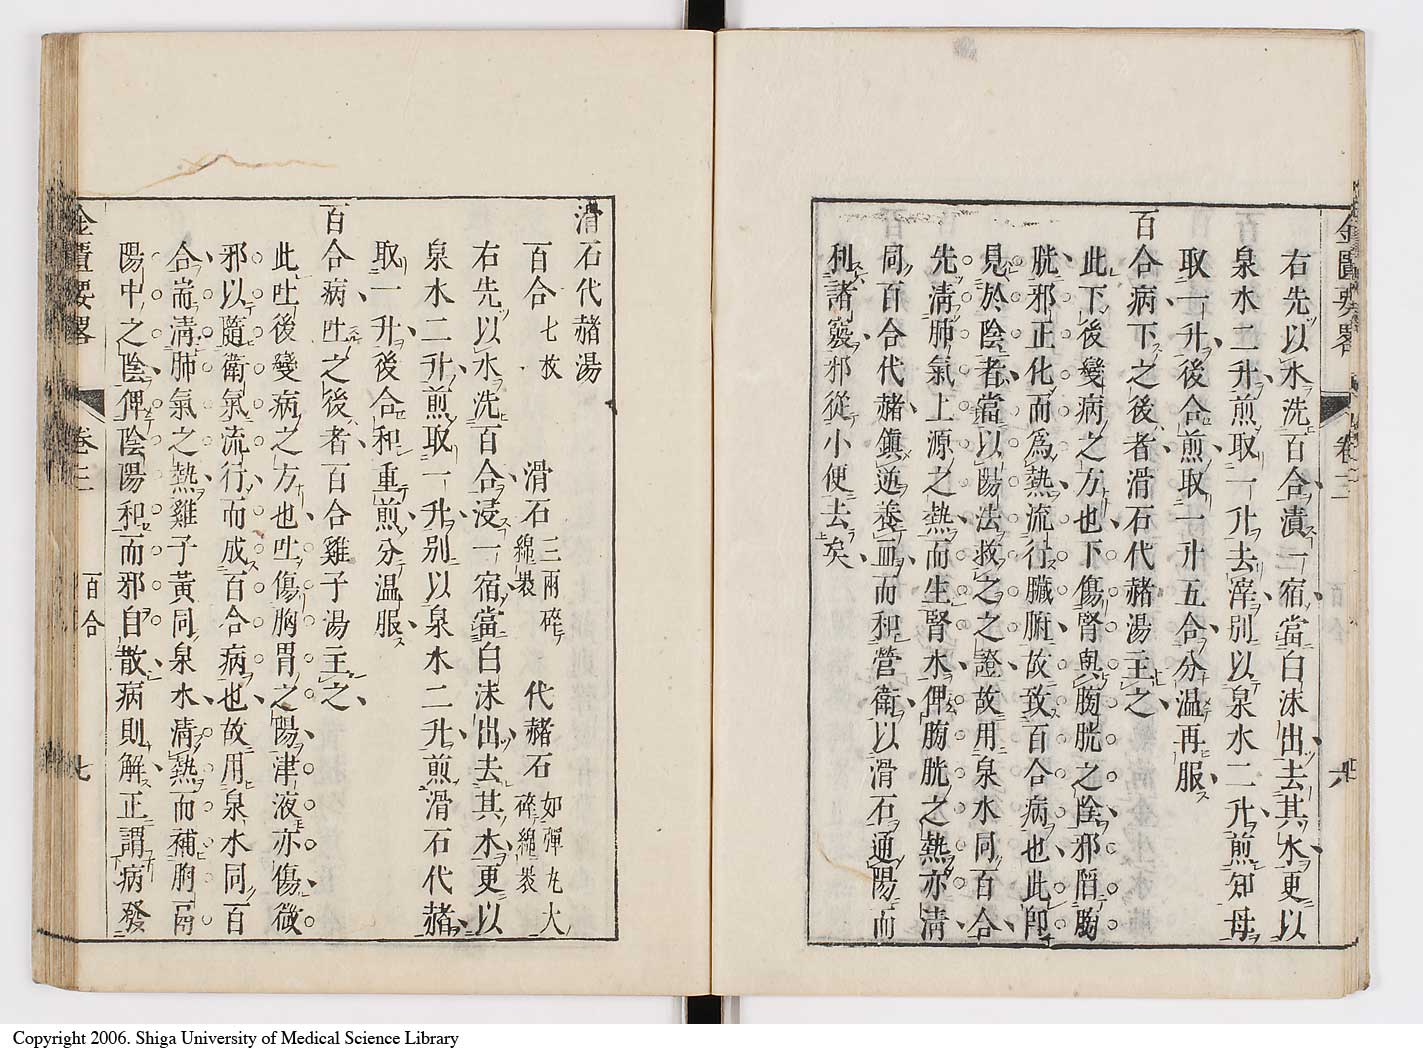 右先以水洗百合漬一宿當白沫出去其水更以
泉水二升煎取一升去滓別以泉水二升煎知母
取一升後合煎取一升五合分温再服
百合病下之後者滑石代赭湯主之
此下後變病之方也下傷腎與膀胱之陰邪陷膀
胱邪正化而為熱流行臟腑故致百合病也此即
見於陰者當以陽法救之之證故用泉水同百合
先清肺氣上源之熱而生腎水俾膀胱之熱亦清
同百合代赭鎮逆養血而和營衛以滑石通陽而
利諸竅邪從小便去矣
金匱要畧
卷三
百合
六
滑石代赭湯
百合七枚 滑石三兩碎綿裝 代赭石如彈丸大碎綿裝
右先以水洗百合浸一宿當白沫出去其水更以
泉水二升煎取一升別以泉水二升煎滑石代赭
取一升後合和重煎分温服
百合病吐之後者百合雞子湯主之
此吐後變病之方也吐傷胸胃之陽津液亦傷微
邪以隨衛氣流行而成百合病也故用泉水同百
合耑清肺氣之熱雞子黃同泉水清熱而補胸膈
陽中之陰俾陰陽和而邪自散病則解正謂病發
金匱要畧
卷三
百合
七
Copyright 2006. Shiga University of Medical Science Library